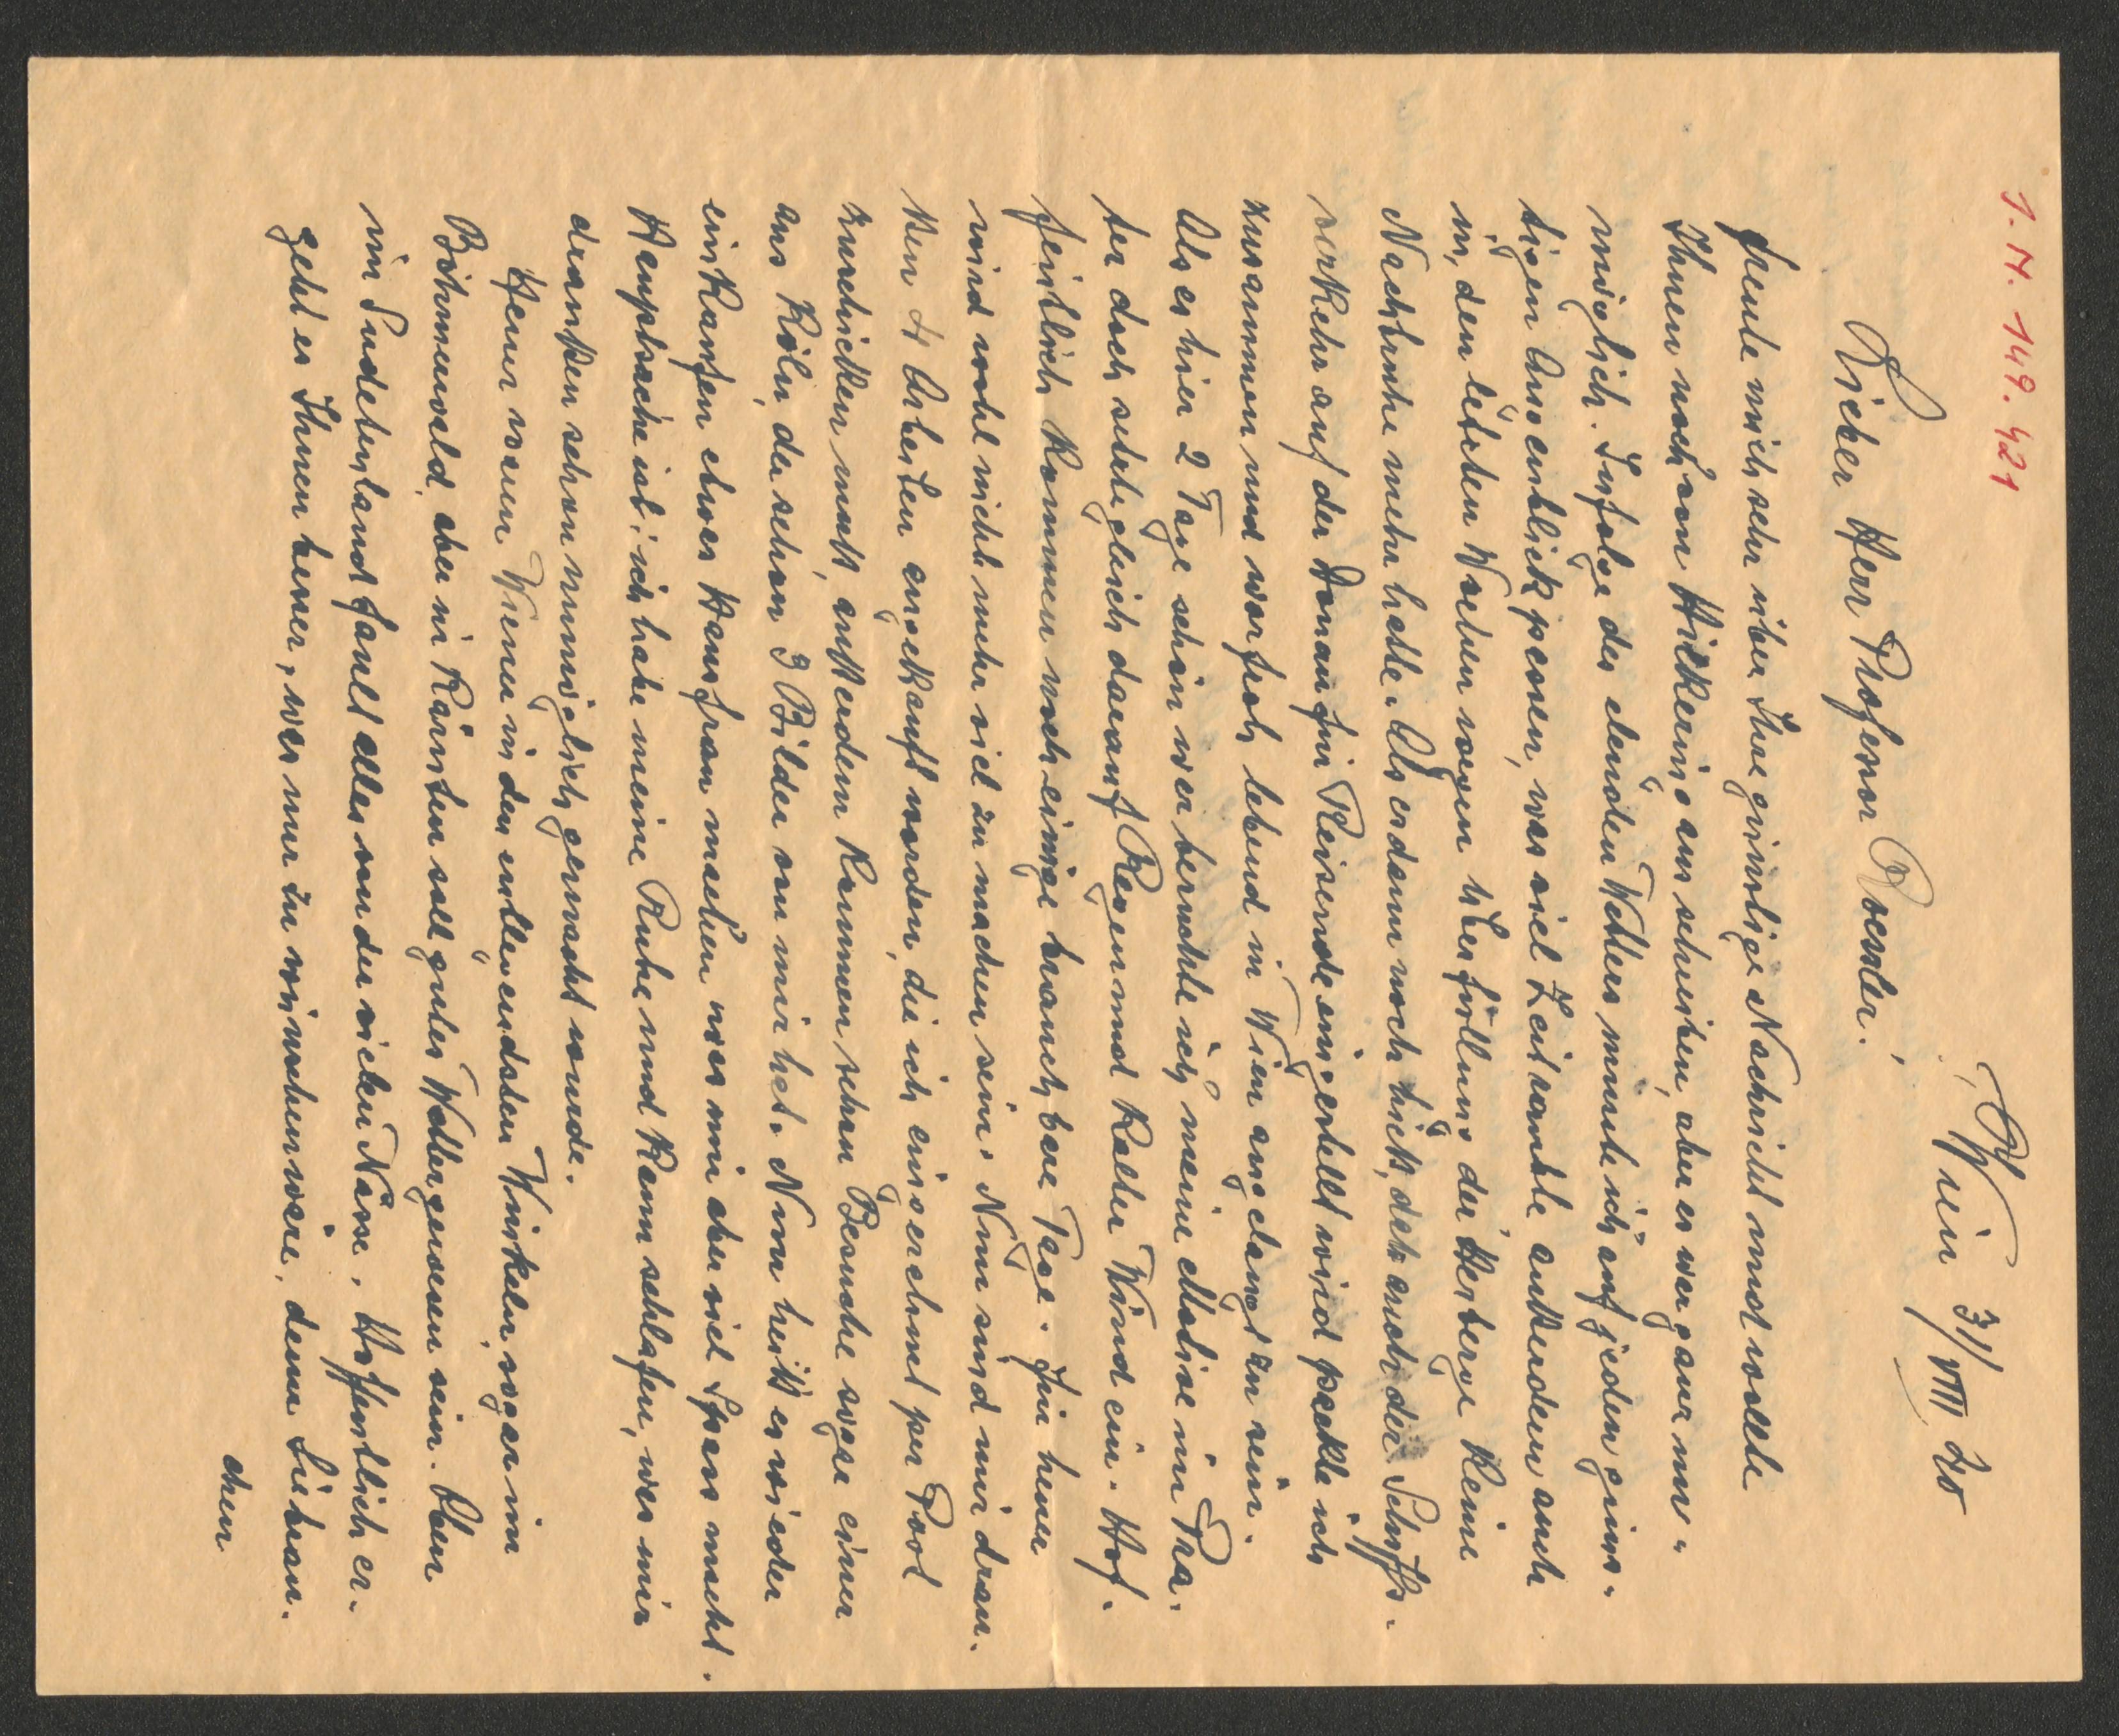 I. N. 149.421
Wien 31/VIII 40
Lieber Herr Professor Roessler!
freute mich sehr über Ihre günstige Nachricht und wollte
Ihnen noch von Hüttering aus schreiben, aber es war ganz un-
möglich. Infolge des elenden Wetters mußte ich auf jeden güns-
tigen Augenblick passen, was viel Zeit raubte außerdem auch
in, den letzten Wochen wegen Überfüllung der Herberge keine
Nachtruhe mehr hatte. Als es dann noch hieß, daß auch der Schiffs-
verkehr auf der Donau für Reisende eingestellt wird packte ich
zusammen und war froh lebend in Wien angelangt zu sein.
Als es hier 2 Tage schön war benutzte ich meine Motive im Pra-
ter doch setzte gleich darauf Regen und kalter Wind ein. Hof-
fentlich kommen noch einige brauchbare Tage. Für heuer
wird wohl nicht mehr viel zu machen sein. Nun sind mir drau-
ßen 4 Arbeiten angekauft worden, die ich eingerahmt per Post
zuschicken muß, außerdem kommen schon Besuche sogar einer
aus Köln, der schon 3 Bilder von mir hat. Nun heißt es wieder
einkaufen etwas Hausfrau machen was mir aber viel Spass macht.
Hauptsache ist: ich habe meine Ruhe und kann schlafen, was mir
draußen schon unmöglich gemacht wurde.
Heuer waren Wiener in den entlegendsten Winkeln, sogar im
Böhmerwald, aber in Kärnten soll gutes Wetter gewesen sein. Oben
im Sudetenland fault alles von der vielen Nässe. Hoffentlich er-
geht es Ihnen besser, was nur zu wünschen wäre, denn Sie brau-
chen